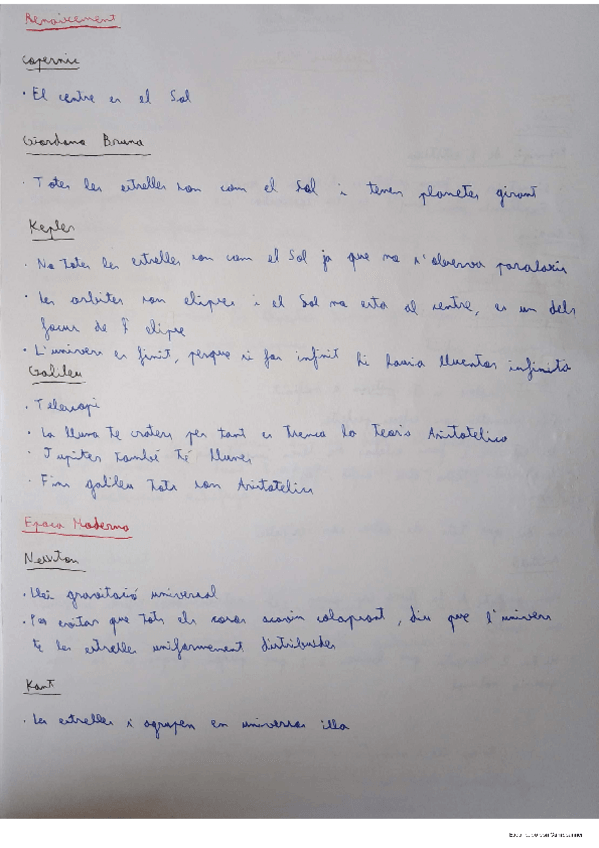 Renaixement
Copernic
· El centre es el Sol
Giordano Bruno
· Totes les estrelles son com el Sol i tenen planetes girant
Kepler
· No totes les estrelles son com el Sol ja que no s'observa paralaxis
· Les orbites son elipses i el Sol no esta al centre, es un dels
focus de l'elipse
· L'univers es finit, perque si fos infinit hi hauria lluentor infinita
Galileu
· Telescopi
· La lluna te craters per tant es trenca la Teoria Aristotelica
· Jupiter també té llunes
· Fins galileu tots son Aristotelics
Epoca Moderna
Newton
· Llei gravitació universal
· Per evitar que tots els cosos acabin colapsant, diu que l'univers
te les estrelles uniformement distribuides
Kant
· Les estrelles s agrupen en universos illa